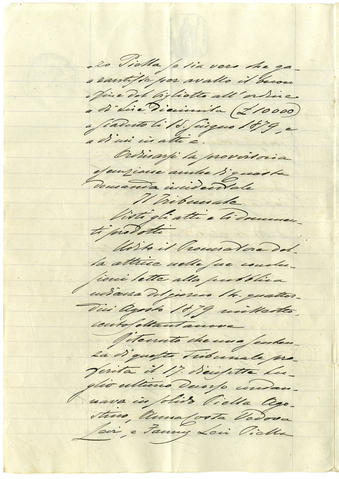 zo Piella se sia vero che ga-
rantisse per avallo il buon
fine del biglietto all'ordine
di Lire diecimila (£ 10000
scaduto li 14 Giugno 1879, e
di cui in atti e.
Ordinarsi la provvisoria
esecuzione anche di questa
domanda incidentale
Il Tribunale
Visti gli atti e li documen-
ti prodotti
Udito il Procuratore del-
la attrice nelle sue conclu-
sioni lette alla pubblica
udienza del giorno 14 quattor-
dici Agosto 1879 mille otto
cento settantanove
Ritenuto che una senten-
za di questo Tribunale pro-
ferita il 17 diciasette Lu-
glio ultimo decorso condan-
nava in solido Piella Ago-
stino, Anna Costa Vedova
Leri, e Fanny Leri Piella